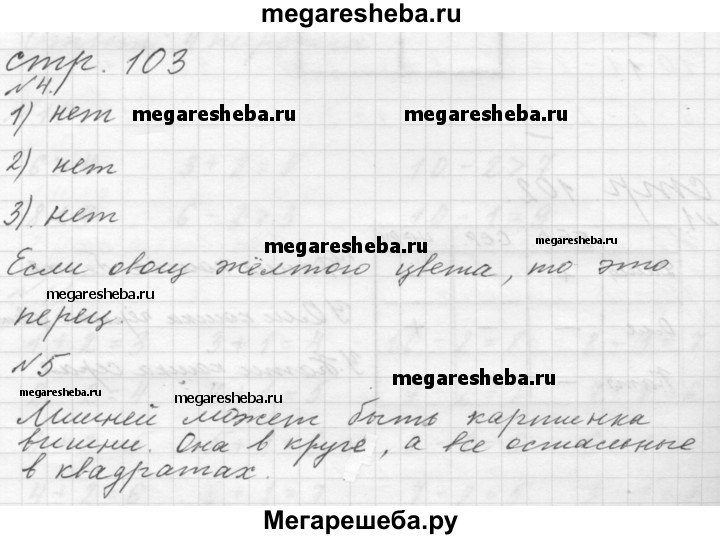 megaresheba.ru
стр. 103
№4.
1) нет megaresheba.ru megaresheba.ru
2) нет
3). нет
megaresheba.ru megaresheba.ru
Если овощ жёлтого цвета, то это
megaresheba.ru
перец.
№5 megaresheba.ru
megaresheba.ru megaresheba.ru
Лишней может быть картинка
вишни. Она в круге, а все остальные
в квадратах.
Мегарешеба.ру